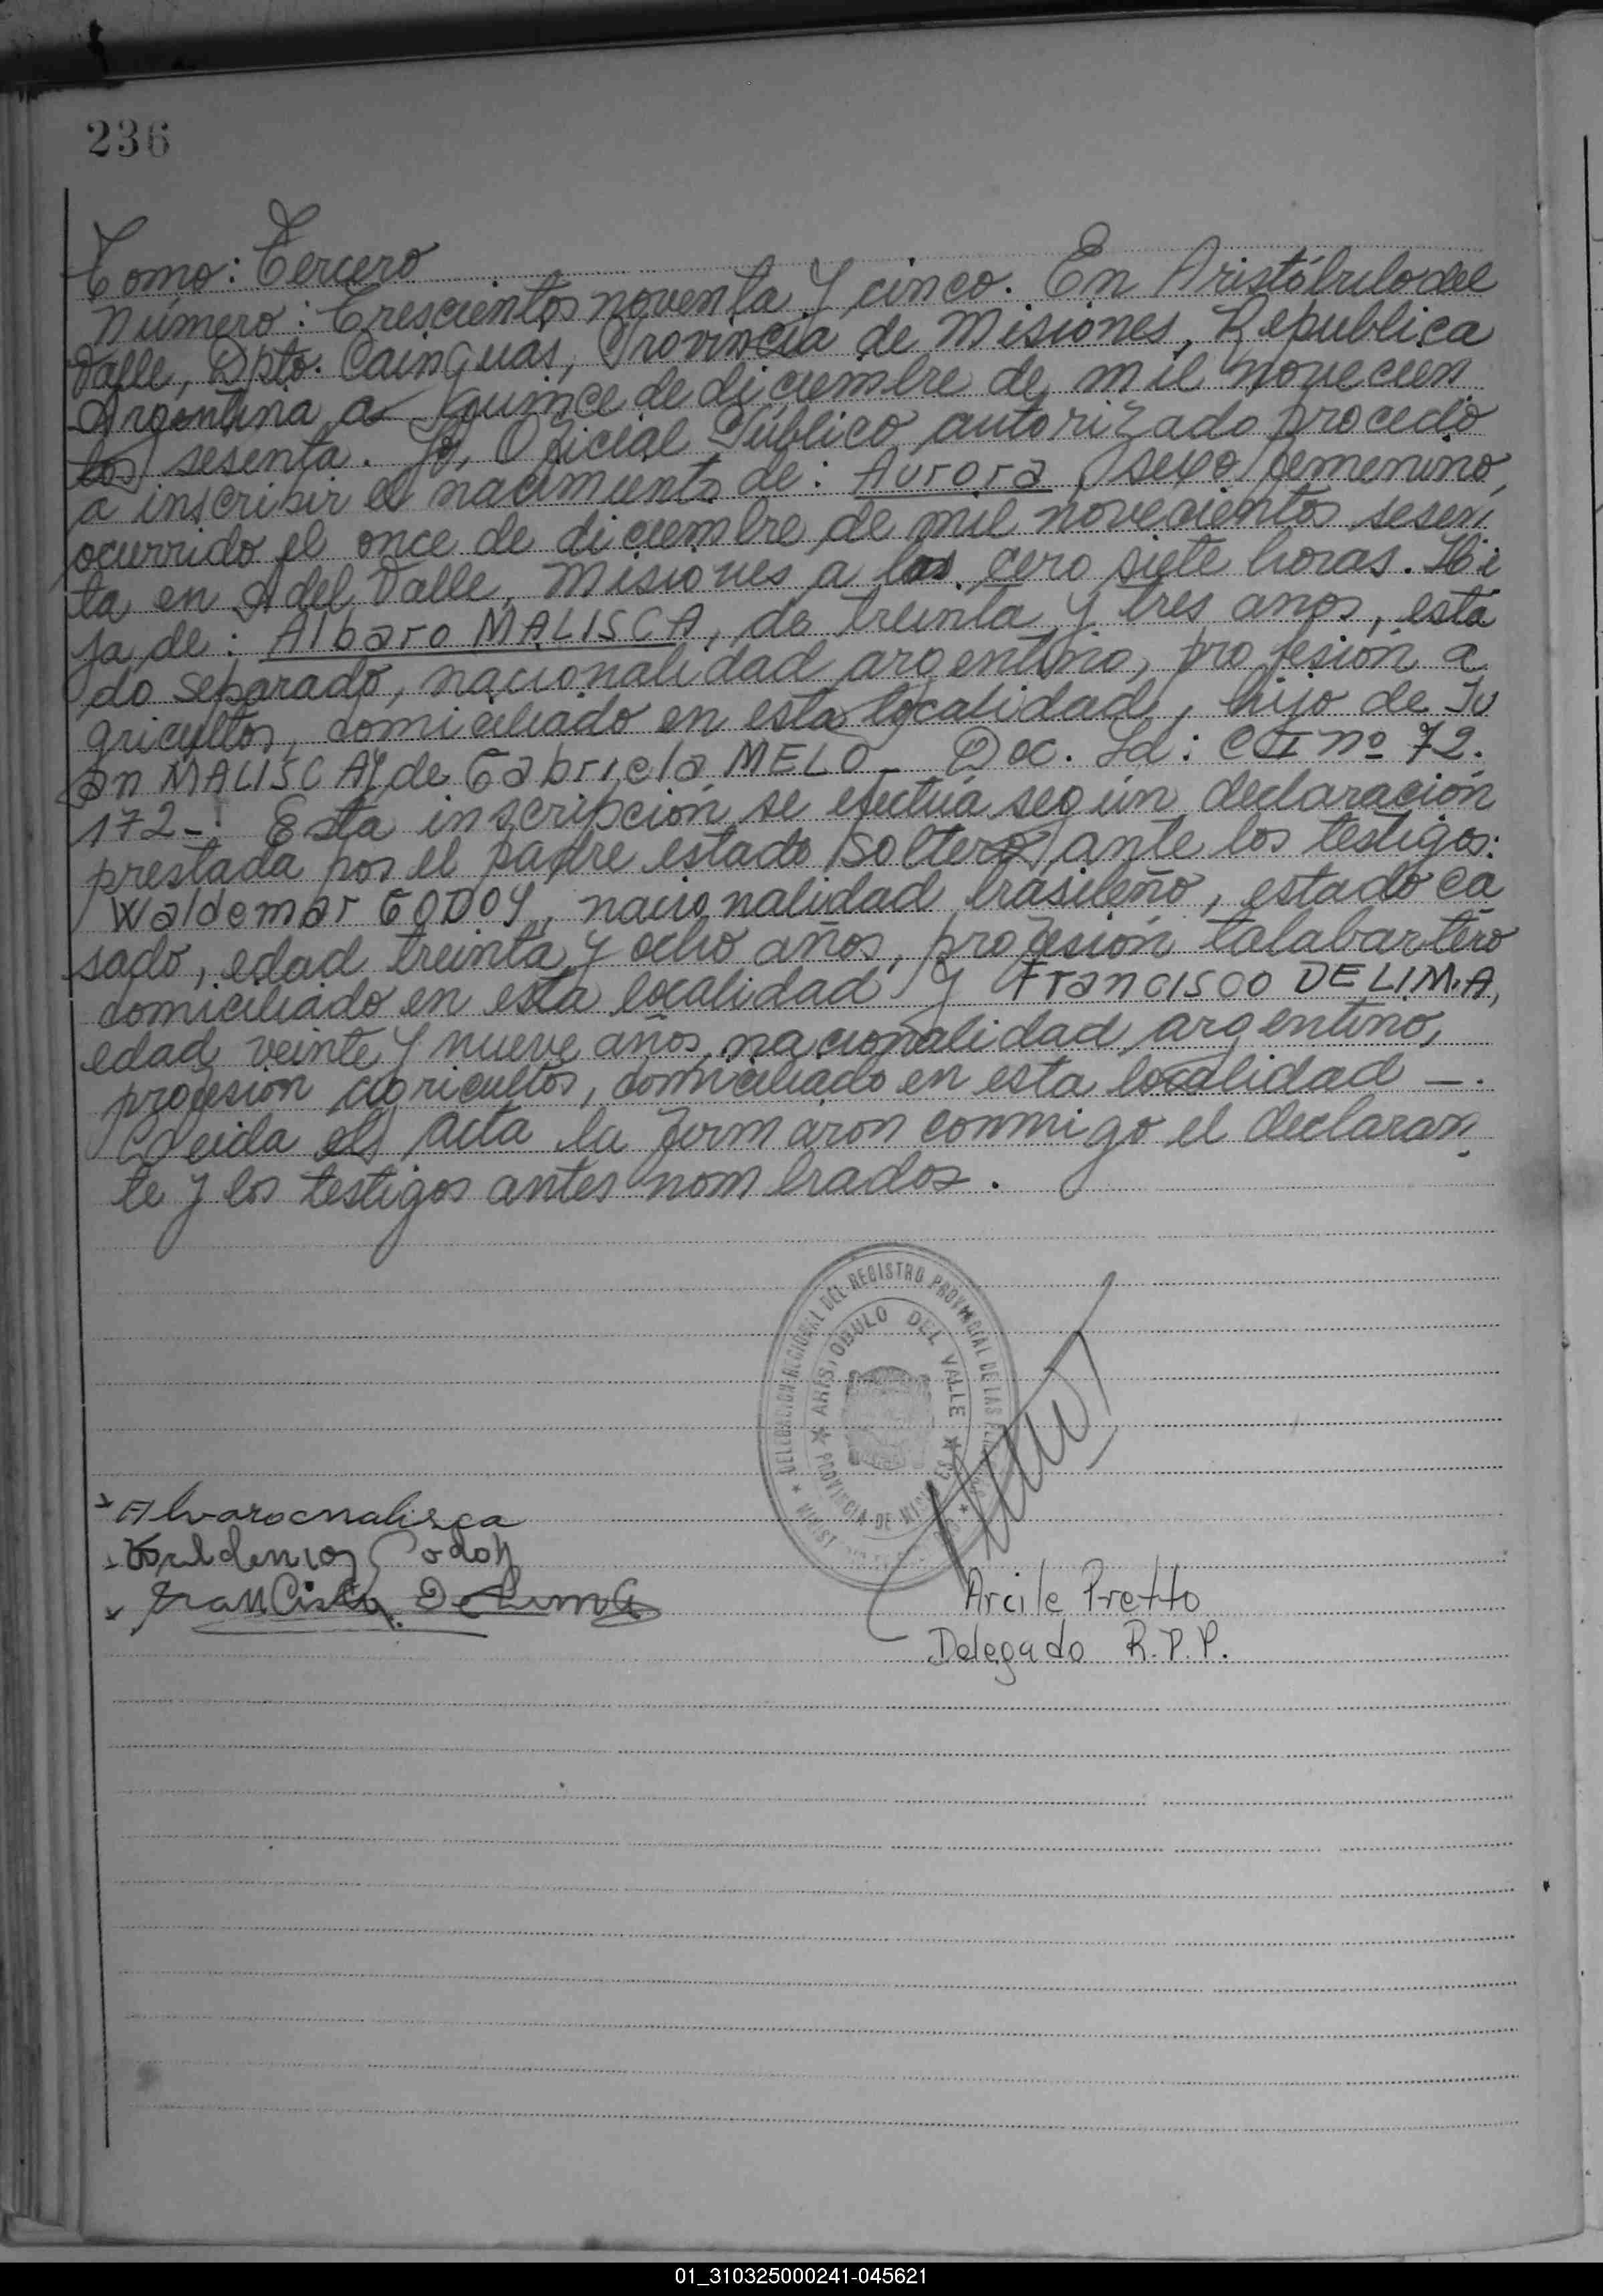 236
Tomo: Tercero
Número: Trescientos noventa y cinco. En Aristóbulo del
Valle, Dpto. Cainguas, Provincia de Misiones, Republica
Argentina a quince de diciembre de mil novecien
tos sesenta. Yo, Oficial Público autorizado procedo
a inscribir el nacimiento de: Aurora, sexo femenino,
ocurrido el once de diciembre de mil novecientos sesen
ta en A del Valle, Misiones a las cero siete horas. Hi
ja de: Albaro MALISCA, de treinta y tres anos, esta
do separado, nacionalidad argentino, profesión a
gricultor, domiciliado en esta localidad, hijo de Ju
an MALISCA y de Gabriela MELO_ Doc. Id: CI nº 72.
172-. Esta inscripción se efectúa según declaración
prestada por el padre estado soltero ante los testigos:
Waldemar GODOY, nacionalidad brasileño, estado ca
sado, edad treinta y ocho años, profesión talabartero
domiciliado en esta localidad y Francisco DE LIMA,
edad veinte y nueve años, nacionalidad argentino,
profesión agricultor, domiciliado en esta localidad —.
Leida el Acta la firmaron conmigo el declaran
te y los testigos antes nombrados.
DELEGACION REGIONAL DEL REGISTRO PROVINCIAL DE LAS
ARISTOBULO DEL VALLE
PROVINCIA DE MISIONES
Alvaro Malisca
Godoy
Francisco De Lima
Arcile Pretto
Delegado R.P.P.
01_310325000241-045621